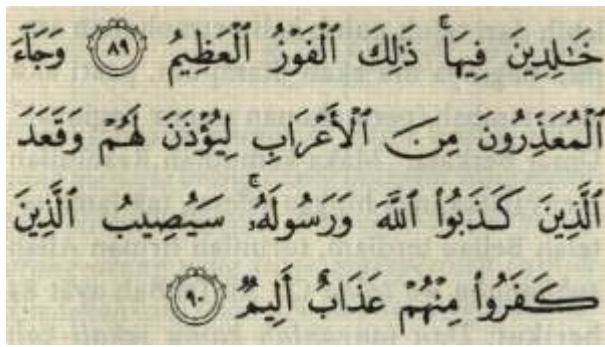 خَٰلِدِينَ فِيهَاۚ ذَٰلِكَ ٱلْفَوْزُ ٱلْعَظِيمُ ٨٩ وَجَآءَ
ٱلْمُعَذِّرُونَ مِنَ ٱلْأَعْرَابِ لِيُؤْذَنَ لَهُمْ وَقَعَدَ
ٱلَّذِينَ كَذَبُوا۟ ٱللَّهَ وَرَسُولَهُۥۚ سَيُصِيبُ ٱلَّذِينَ
كَفَرُوا۟ مِنْهُمْ عَذَابٌ أَلِيمٌ ٩٠